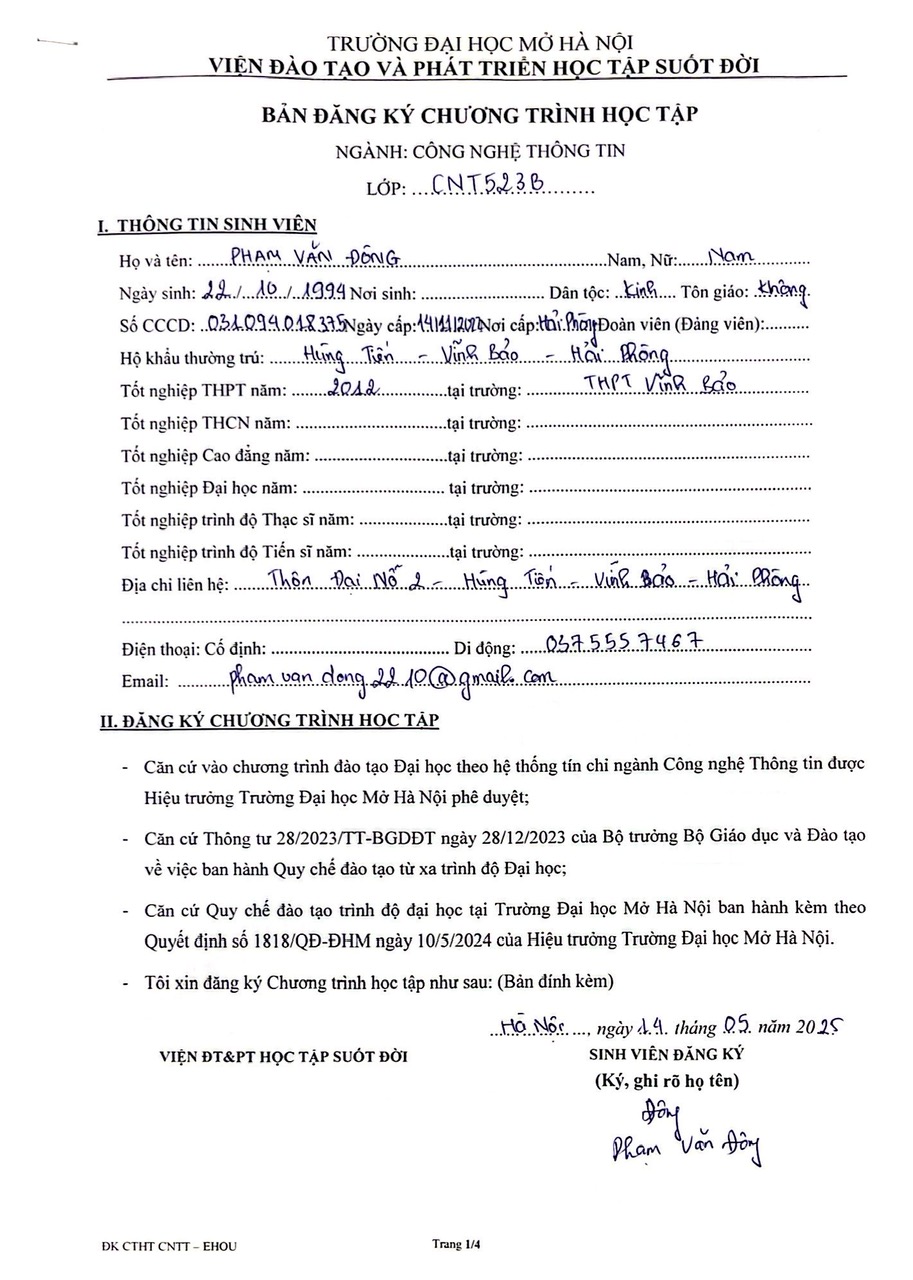 TRƯỜNG ĐẠI HỌC MỞ HÀ NỘI
VIỆN ĐÀO TẠO VÀ PHÁT TRIỂN HỌC TẬP SUỐT ĐỜI
BẢN ĐĂNG KÝ CHƯƠNG TRÌNH HỌC TẬP
NGÀNH: CÔNG NGHỆ THÔNG TIN
LỚP: ...CNT523B...
I. THÔNG TIN SINH VIÊN
Họ và tên: ...PHẠM VĂN ĐÔNG...Nam, Nữ:...Nam...
Ngày sinh: 22./..10../..1994 Nơi sinh: ... Dân tộc: ..Kinh.. Tôn giáo: Không.
Số CCCD: .031094018375 Ngày cấp: 14/11/2022 Nơi cấp: Hải Phòng Đoàn viên (Đảng viên):...
Hộ khẩu thường trú: ...Hùng Tiến - Vĩnh Bảo - Hải Phòng...
Tốt nghiệp THPT năm: ...2012...tại trường: ...THPT Vĩnh Bảo...
Tốt nghiệp THCN năm: ...tại trường: ...
Tốt nghiệp Cao đẳng năm: ...tại trường: ...
Tốt nghiệp Đại học năm: ... tại trường: ...
Tốt nghiệp trình độ Thạc sĩ năm: ...tại trường: ...
Tốt nghiệp trình độ Tiến sĩ năm: ...tại trường: ...
Địa chỉ liên hệ: ...Thôn Đại Nỗ 2 - Hùng Tiến - Vĩnh Bảo - Hải Phòng..
Điện thoại: Cố định: ... Di động: ...0375557467...
Email: ...phamvandong2210@gmail.com...
II. ĐĂNG KÝ CHƯƠNG TRÌNH HỌC TẬP
- Căn cứ vào chương trình đào tạo Đại học theo hệ thống tín chỉ ngành Công nghệ Thông tin được
Hiệu trưởng Trường Đại học Mở Hà Nội phê duyệt;
- Căn cứ Thông tư 28/2023/TT-BGDĐT ngày 28/12/2023 của Bộ trưởng Bộ Giáo dục và Đào tạo
về việc ban hành Quy chế đào tạo từ xa trình độ Đại học;
- Căn cứ Quy chế đào tạo trình độ đại học tại Trường Đại học Mở Hà Nội ban hành kèm theo
Quyết định số 1818/QĐ-ĐHM ngày 10/5/2024 của Hiệu trưởng Trường Đại học Mở Hà Nội.
- Tôi xin đăng ký Chương trình học tập như sau: (Bản đính kèm)
...Hà Nội..., ngày 14. tháng 05. năm 2025
VIỆN ĐT&PT HỌC TẬP SUỐT ĐỜI
SINH VIÊN ĐĂNG KÝ
(Ký, ghi rõ họ tên)
Đông
Phạm Văn Đông
ĐK CTHT CNTT – EHOU
Trang 1/4